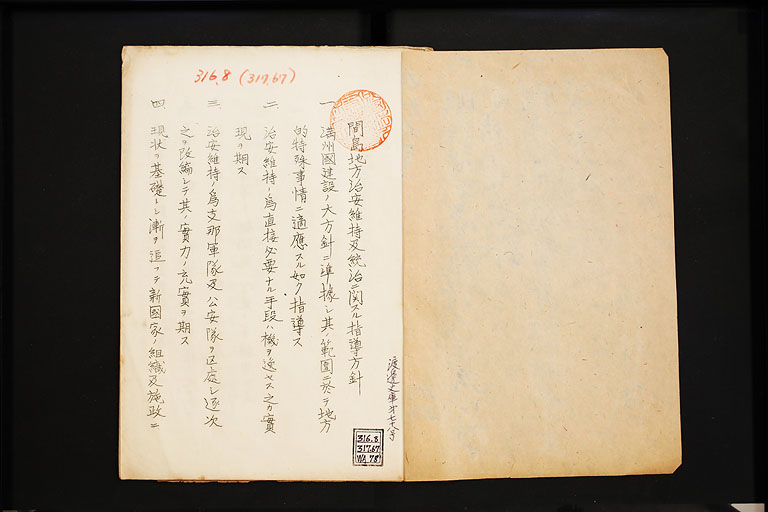 316.8 (317.67)
間島地方治安維持及統治ニ関スル指導方針
一 満州國建設ノ大方針ニ準據シ其ノ範圍ニ於テ地方
的特殊事情ニ適應スル如ク指導ス
二 治安維持ノ爲直接必要ナル手段ハ機ヲ逸セス之カ實
現ヲ期ス
三 治安維持ノ爲支那軍隊及公安隊ヲ区處シ逐次
之ヲ改編シテ其ノ實力ノ充實ヲ期ス
四 現状ヲ基礎トシ漸ヲ追フテ新國家ノ組織及施政ニ
渡邊文庫才七十八号
316.8
317.67
W, 78